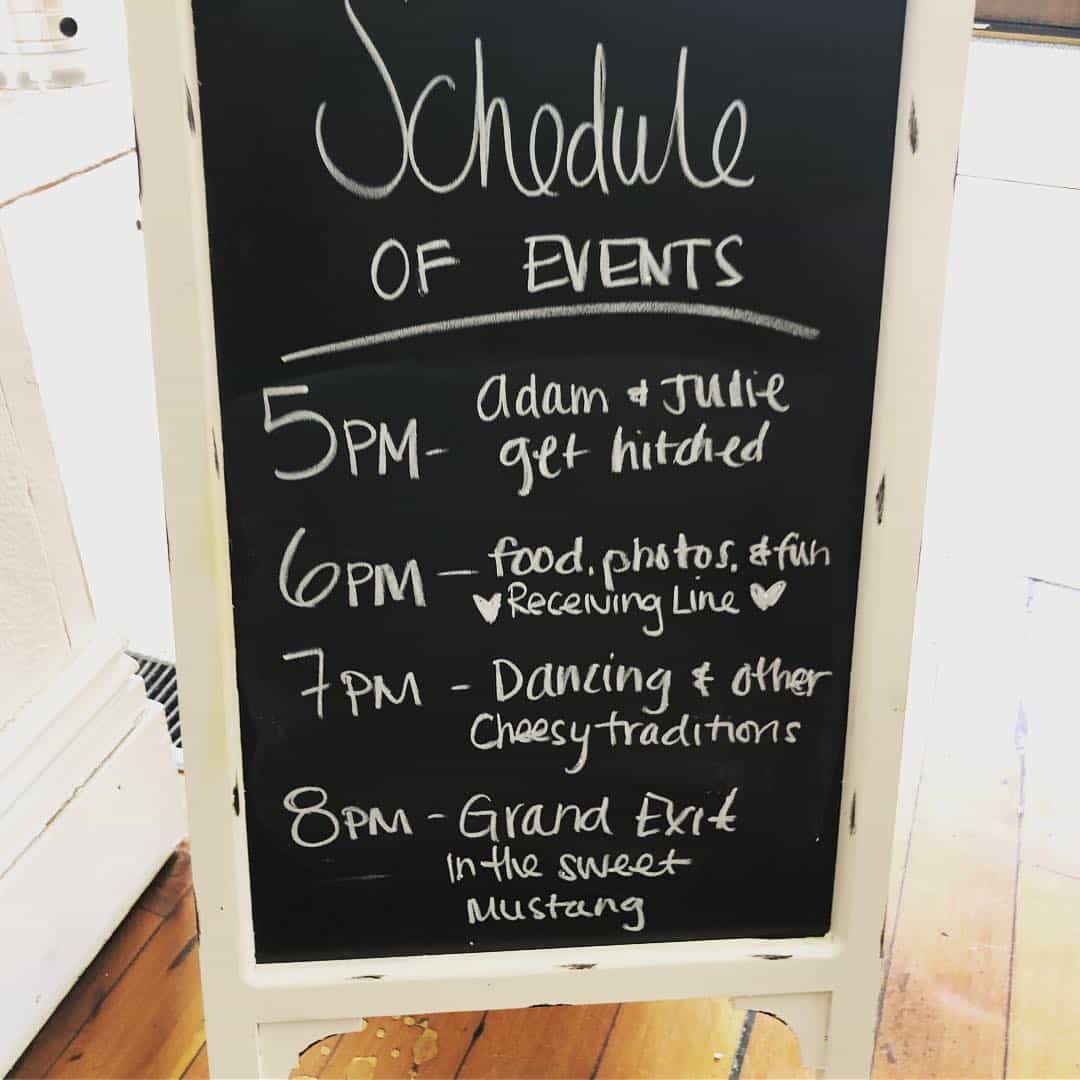 Schedule
OF EVENTS
5PM- adam & Julie
get hitched
6PM - food, photos, & fun
♥ Receiving Line ♥
7PM - Dancing & other
Cheesy traditions
8PM - Grand Exit
in the sweet
Mustang